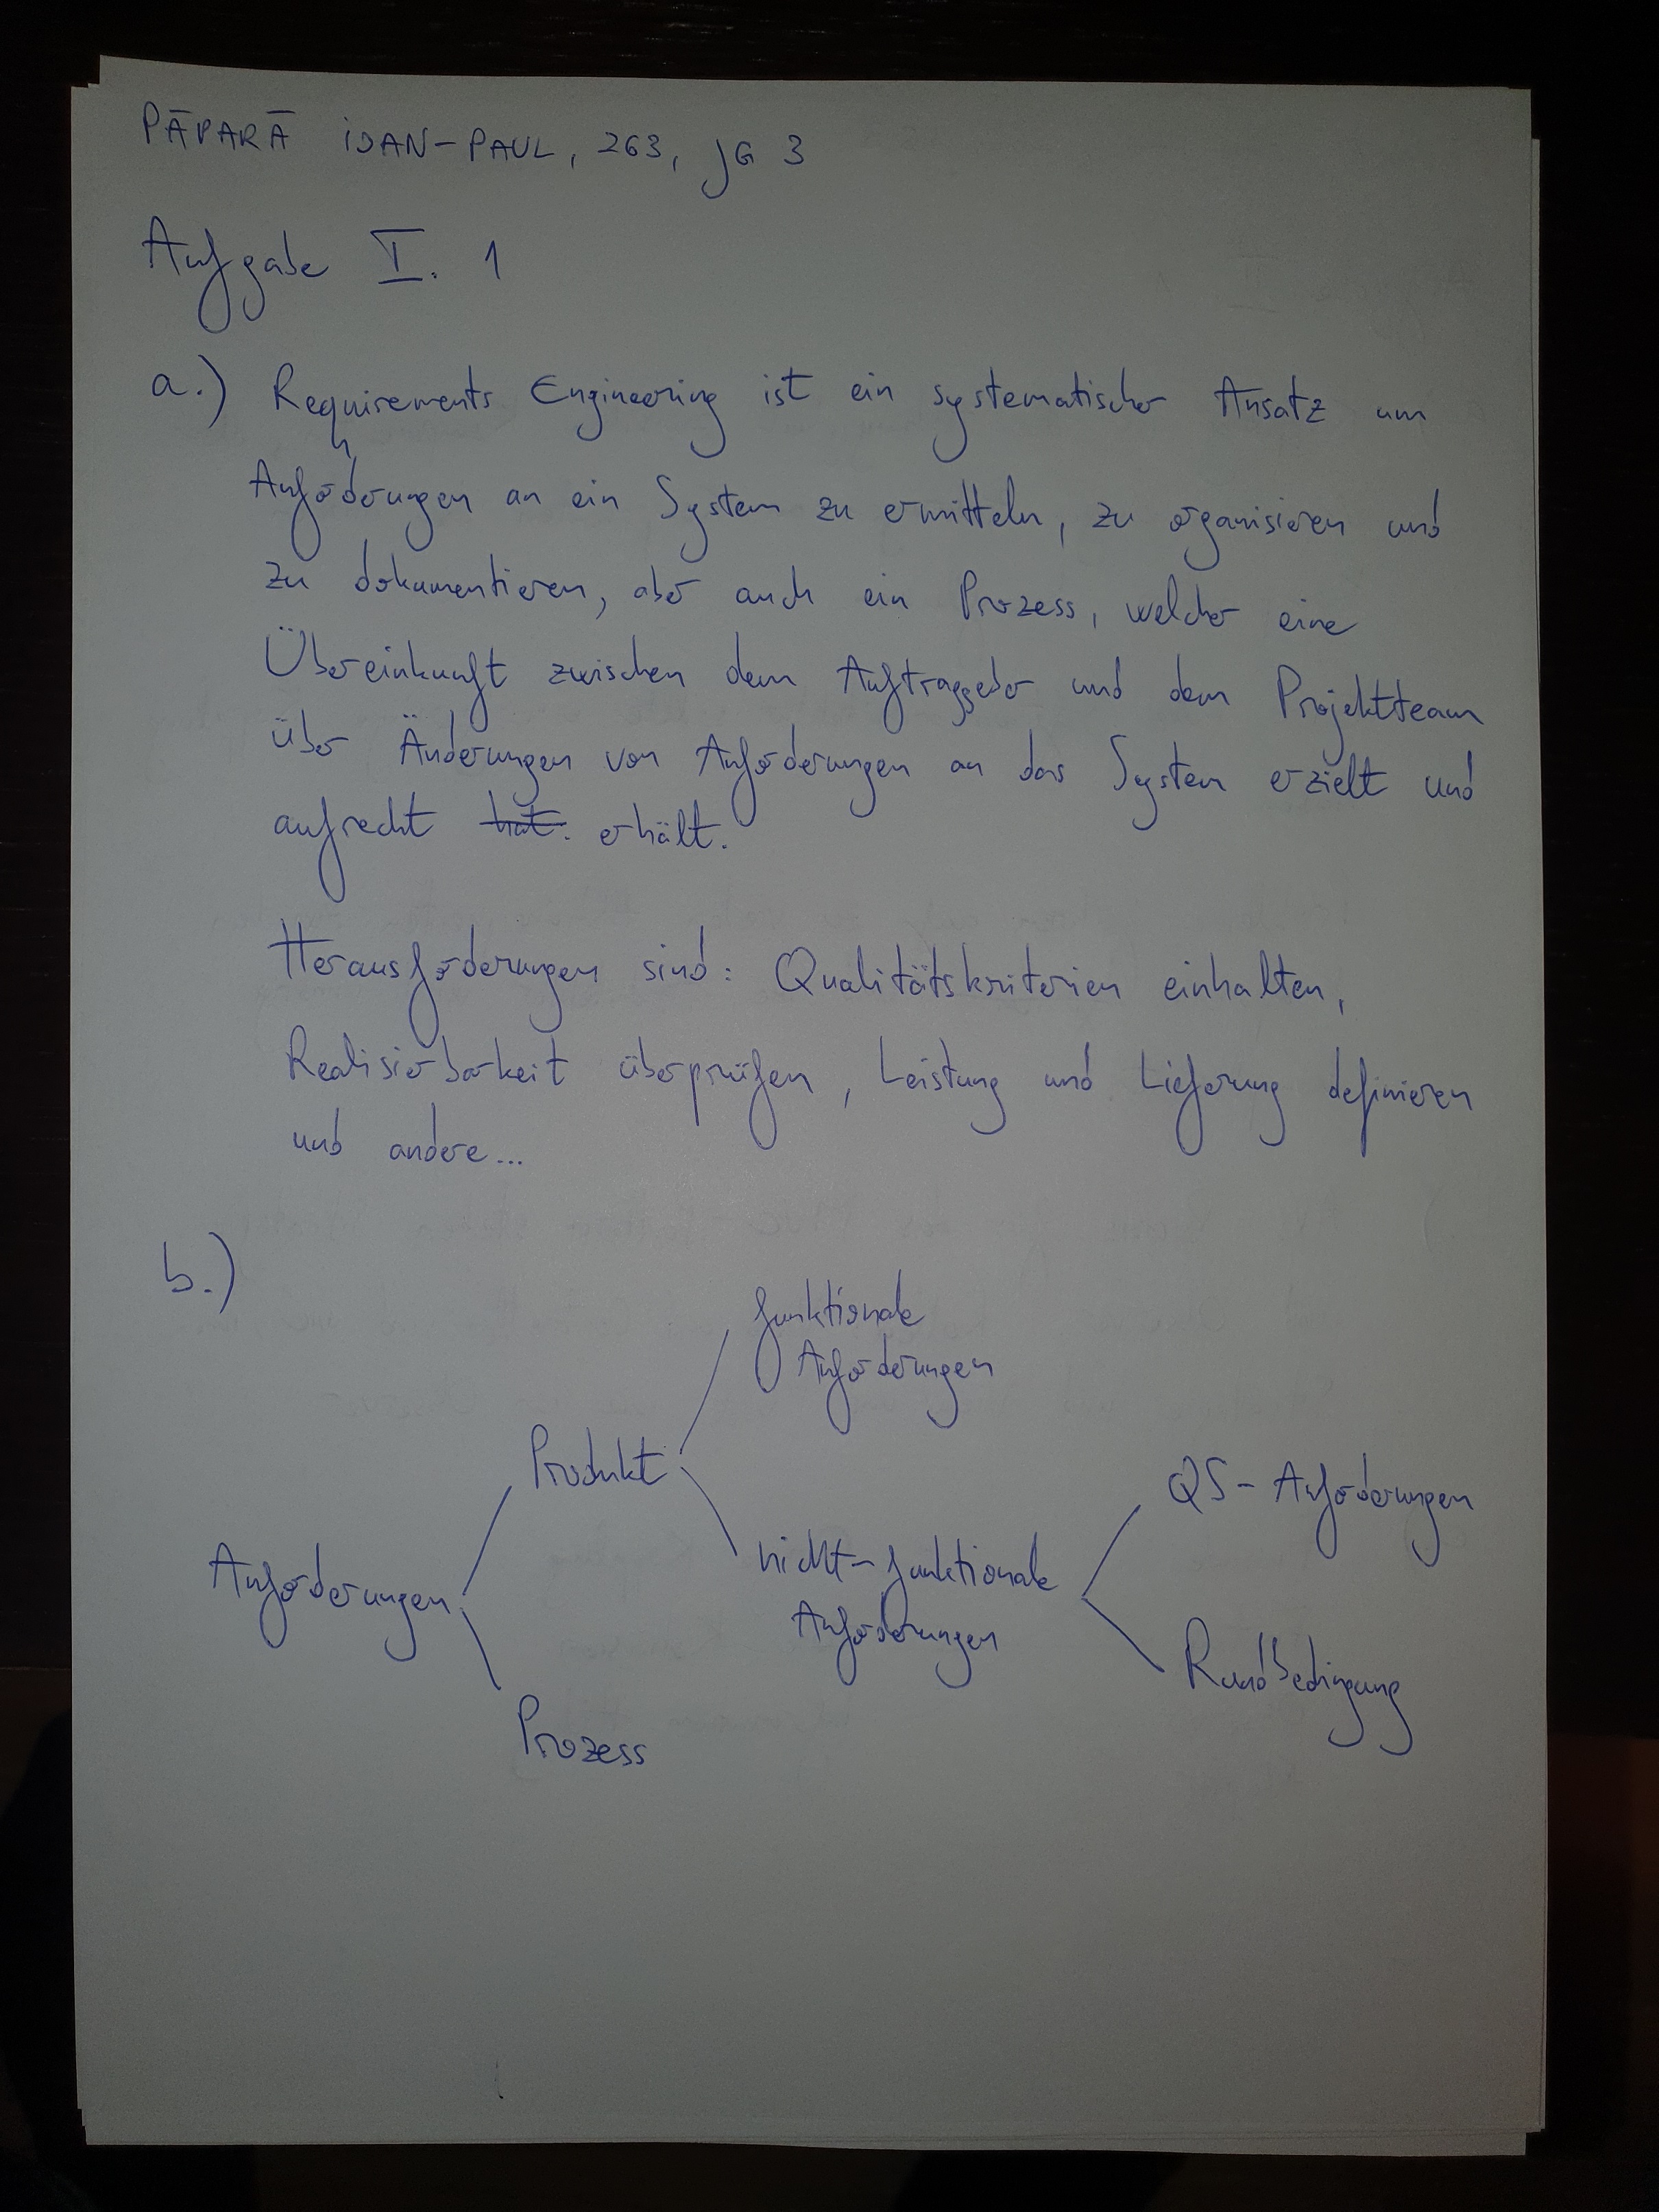 PĂPARĂ IOAN-PAUL, 263, JG 3
Aufgabe I. 1
a.) Requirements Engineering ist ein systematischer Ansatz um
Anforderungen an ein System zu ermitteln, zu organisieren und
zu dokumentieren, aber auch ein Prozess, welcher eine
Übereinkunft zwischen dem Auftraggeber und dem Projektteam
über Änderungen von Anforderungen an das System erzielt und
aufrecht hat. erhält.
Herausforderungen sind: Qualitätskriterien einhalten,
Realisierbarkeit überprüfen, Leistung und Lieferung definieren
und andere...
b.)
funktionale
Anforderungen
Produkt
QS- Anforderungen
Anforderungen
nicht-funktionale
Anforderungen
Randbedingung
Prozess